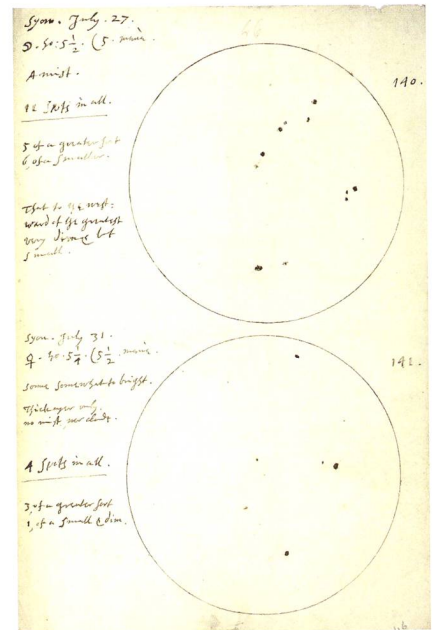 Syon. July. 27.
☽. ho: 5 1/2. (5.
140.
A mist.
Spots in all.
5 of a greater sort
6, of a smaller.
That to the west-
ward of the greatest
very but
small.
Syon. July 31.
♀. ho. 5 1/4. (5 1/2.
141.
some somewhat to bright.
Thick ayer only.
no mist, nor clouds.
4 Spots in all.
3, of a greater sort
1, of a small & dim.